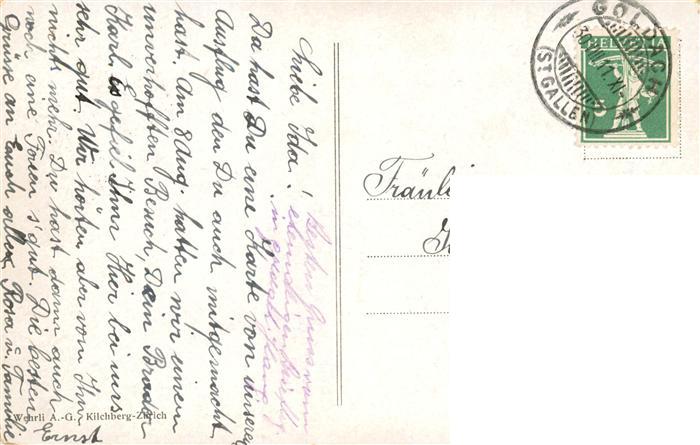 Liebe Ida!
Da hast Du eine Karte von unserem
Ausflug den Du auch mitgemacht
hast. Am 8 Aug hatten wir einen
unverhofften Besuch, Dein Bruder
Karl. Es gefiel Ihm Hier bei uns
sehr gut. Wir hörten aber von Ihm
nichts mehr. Du hast dann auch
noch eine s'gut. Die besten
Grüsse an Euch allen, Rosa u. Familie
Ernst
Besten Gruss von
Wehrli A.-G., Kilchberg-Zürich
Fräulein
GOLDACH
(ST. GALLEN)
XI
HELVETIA
5